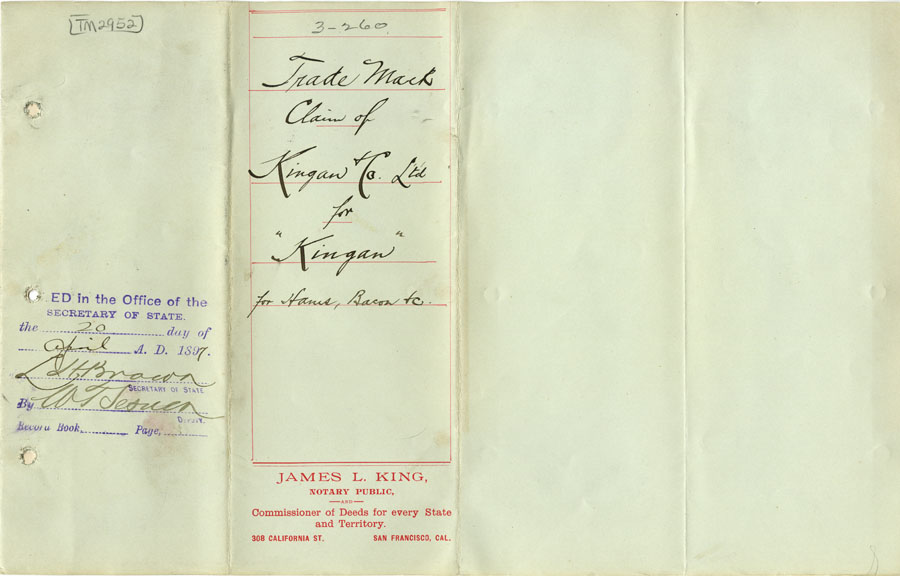 [TM2952]
ED in the Office of the
SECRETARY OF STATE.
the 20 day of
April A. D. 1897.
L. H. Brown
SECRETARY OF STATE
By W. T.
Deputy.
Record Book, Page,
3-260.
Trade Mark
Claim of
Kingan & Co. Ltd
for
"Kingan"
for Hams, Bacon &c.
JAMES L. KING,
NOTARY PUBLIC,
AND
Commissioner of Deeds for every State
and Territory.
308 CALIFORNIA ST. SAN FRANCISCO, CAL.